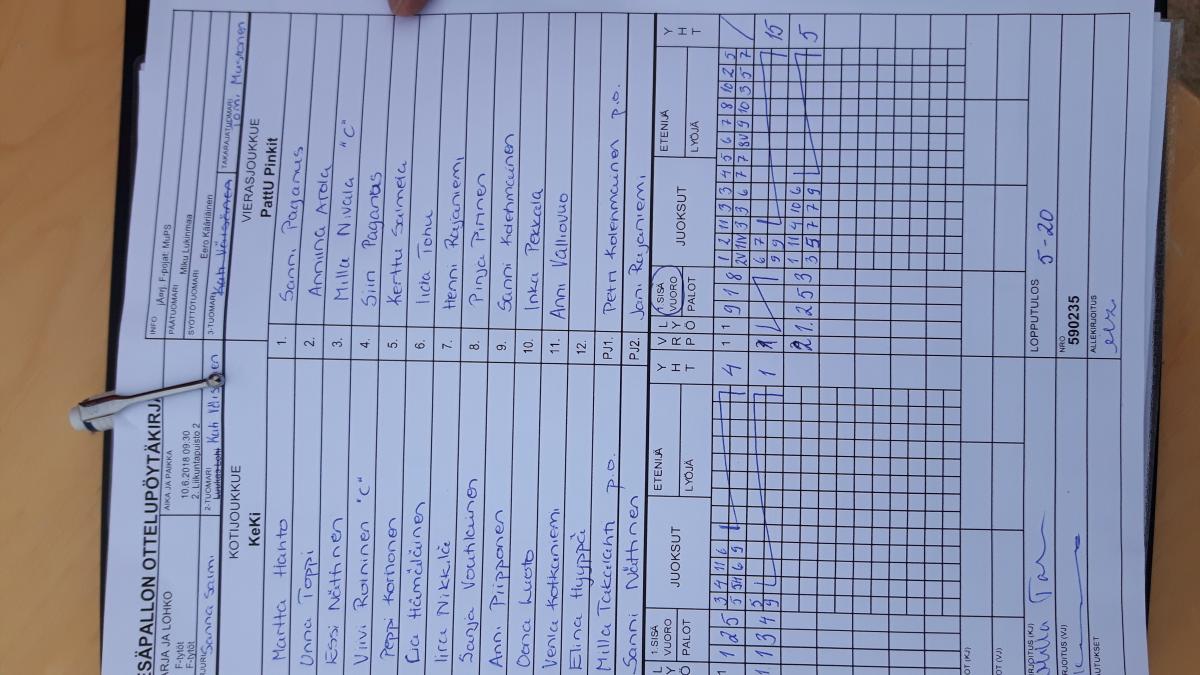 ESÄPALLON OTTELUPÖYTÄKIRJA
ARJA JA LOHKO
F-tytöt
F-tytöt
AIKA JA PAIKKA
10.6.2018 09:30
2. Liikuntapuisto 2
INFO jÄarj. F-pojat, MuPS
PÄÄTUOMARI
SYÖTTÖTUOMARI Miku Lukinmaa
2-TUOMARI
3-TUOMARI Eero Kääriäinen
Kati Väisänen
TAKARAJATUOMARI
Mustonen
KOTIJOUKKUE
KeKi
VIERASJOUKKUE
PattU Pinkit
Martta Hahto 1. Sanni Paganus
Unna Toppi 2. Anniina Arola
Essi Nättinen 3. Milla Nivala "C"
Viivi Roininen "C" 4. Siiri Paganus
Peppi Korhonen 5. Kerttu Saimela
Eia Hämäläinen 6. Iida Tohu
Iira Nikkilä 7. Henni Rajaniemi
Sanja Voutilainen 8. Pinja Pirinen
Anni Piipponen 9. Sanni Kolehmainen
Oona Luoto 10. Inka Pekkala
Venla Kotkaniemi 11. Anni Valliovuo
Elina Hyyppä 12.
Milla Takalahti p.o. PJ1. Petri Kolehmainen p.o.
Sanni Nättinen PJ2. Jani Rajaniemi
1.SISÄ VUORO
PALOT
JUOKSUT
ETENIJÄ
LYÖJÄ
Y H T
V R P
L Y Ö
1.SISÄ VUORO
PALOT
JUOKSUT
ETENIJÄ
LYÖJÄ
Y H T
1 1 2 5 3 4 11 6 4
1 1 9 1 8 1 2 11 3 3 4 5 6 7 8 10 2 5
1 1 3 4 9 5 1
6 7 15
9 9
2 1. 2 5 3 1 11 4 10 6 5
3 5 7 7 9
OT (KJ)
OT (VJ)
LOPPUTULOS 5-20
RJOITUS (KJ)
RJOITUS (VJ)
NRO
590235
AUTUKSET
ALLEKIRJOITUS